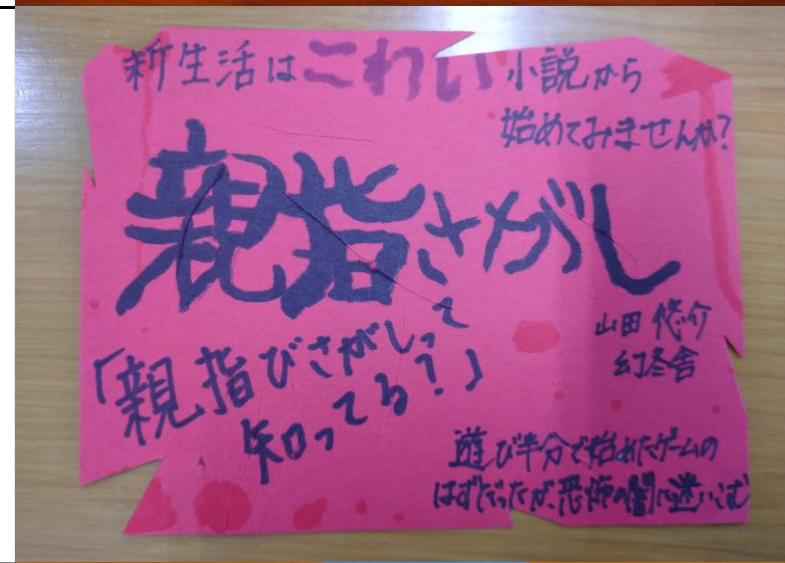 新生活はこわい小説から
始めてみませんか?
親指さがし
山田悠介
幻冬舎
「親指びさがしって
知ってる?」
遊び半分で始めたゲームの
はずだったが、恐怖の闇に迷いこむ